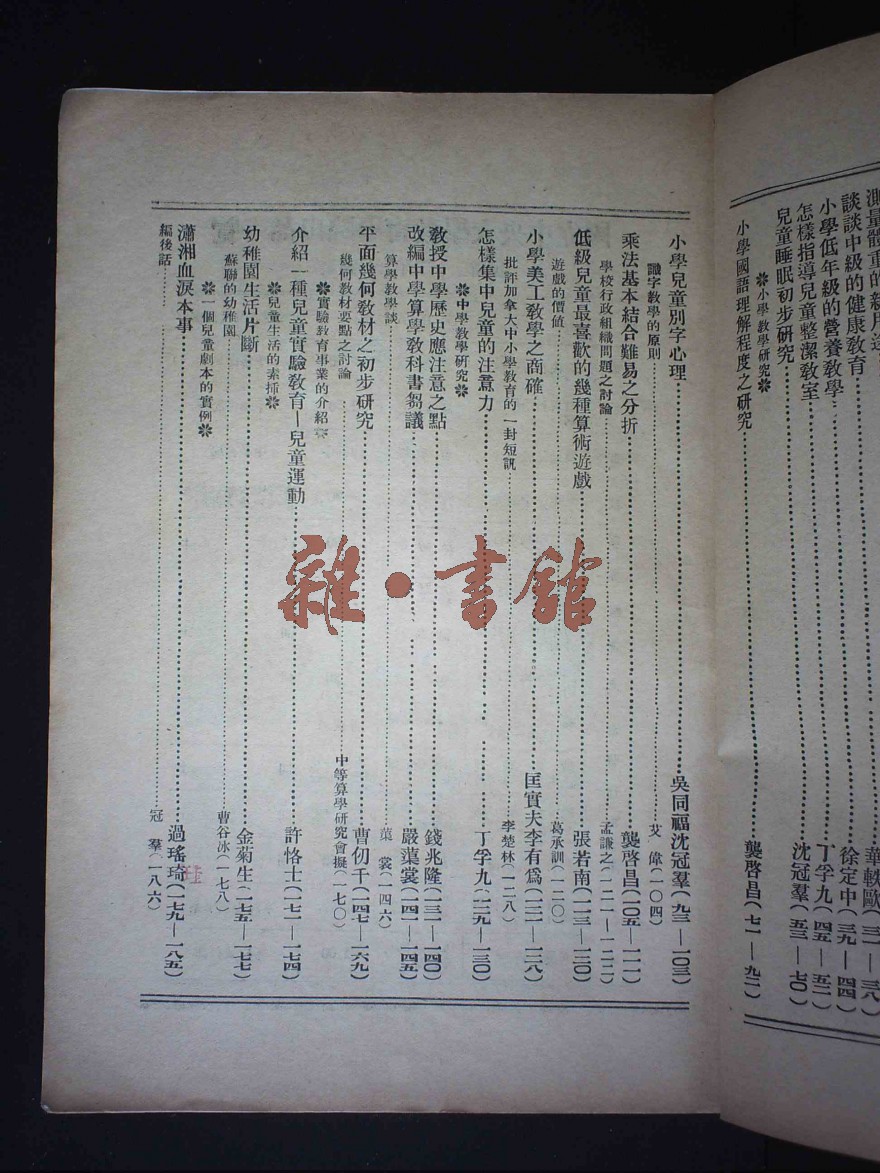 談談中級的健康教育……徐定中(三九—四四)
小學低年級的營養教學……丁孚九(四五—五二)
怎樣指導兒童整潔教室
兒童睡眠初步研究……沈冠羣(五三—七〇)
✽小學教學研究✽
小學國語理解程度之研究……龔啓昌(七一—九二)
小學兒童別字心理……吳同福沈冠羣(九三—一〇三)
識字教學的原則……艾偉(一〇四)
乘法基本結合難易之分折……龔啓昌(一〇五—一一一)
學校行政組織問題之討論……孟謙之(一二一—一二二)
低級兒童最喜歡的幾種算術遊戲……張若南(一一三—一二〇)
遊戲的價値……葛承訓(一二〇)
小學美工敎學之商確……匡實夫李有爲(一二二—一二八)
批評加拿大中小學敎育的一封短訊……李楚林(一二八)
怎樣集中兒童的注意力……丁孚九(一二九—一三〇)
✽中學敎學研究✽
敎授中學歷史應注意之點……錢兆隆(一三一—一四〇)
改編中學算學敎科書芻議……嚴蕖裳(一四一—一四五)
算學敎學談……蕖裳(一四六)
平面幾何敎材之初步研究……曹仞千(一四七—一六九)
幾何敎材要點之討論……中等算學研究會擬(一七〇)
✽實驗敎育事業的介紹✽
介紹一種兒童實驗敎育—兒童運動……許恪士(一七一—一七四)
✽兒童生活的素描✽
幼稚園生活片斷……金菊生(一七五—一七七)
蘇聯的幼稚園……曹谷冰(一七八)
✽一個兒童劇本的實例✽
瀟湘血淚本事……過瑤琦(一七九—一八五)
編後話……冠羣(一八六)
雜·書館